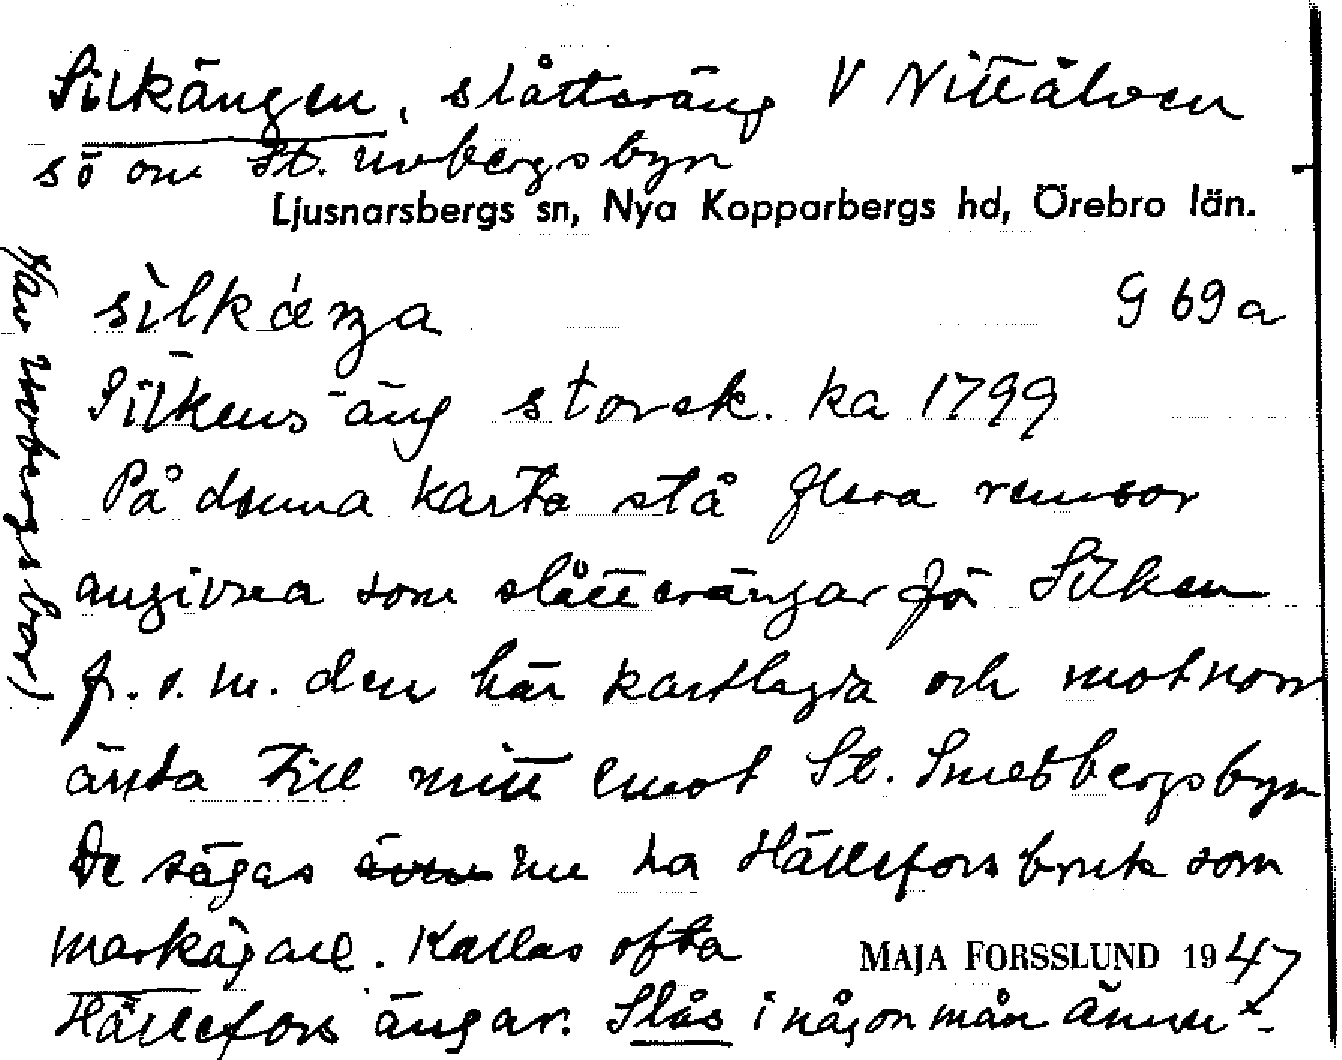 Silkängen, slåtteräng V Nittälven
sö om St. Uvbergsbyn
Ljusnarsbergs sn, Nya Kopparbergs hd, Örebro län.
G 69 a
Silkens äng storsk. ka 1799
På denna karta stå flera remsor
angivna som slåtterängar för Silken
fr. o. m. den här kartlagda och mot norr
ända till mitt emot St. Smedbergsbyn
De sägas även nu ha Hällefors bruk som
markägare. Kallas ofta
MAJA FORSSLUND 1947
Hällefors ängar. Slås i någon mån ännu
Uvbergsbor)